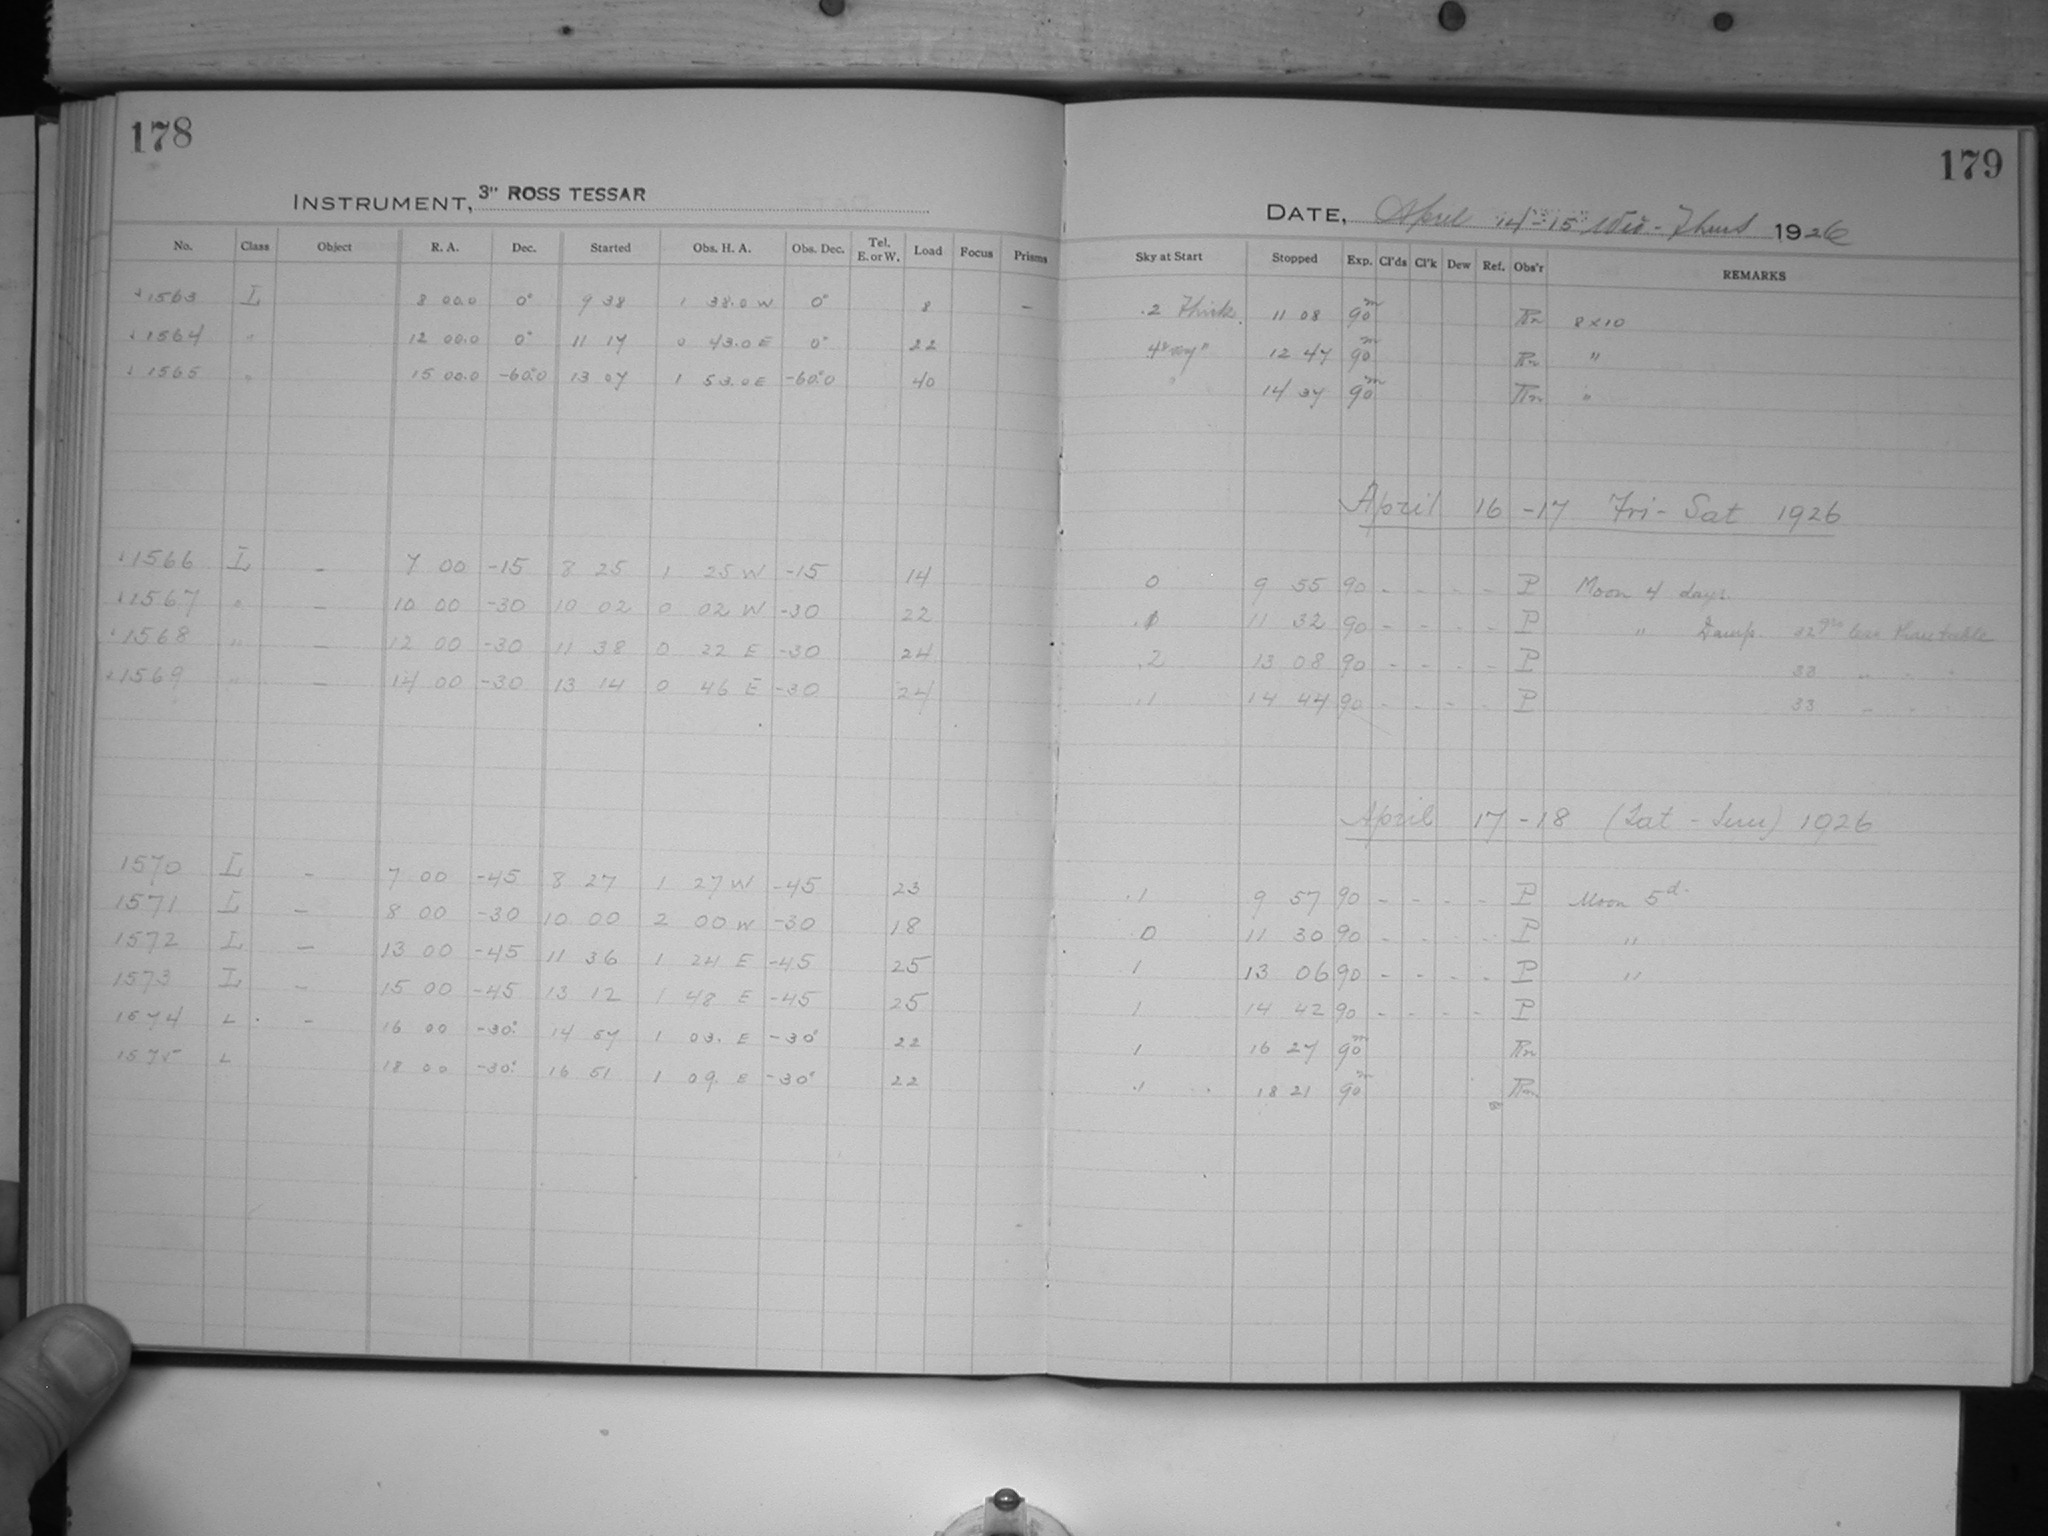 178
INSTRUMENT, 3" ROSS TESSAR
No. Class Object R. A. Dec. Started Obs. H. A. Obs. Dec. Tel. E. or W. Load Focus Prisms
1563 L 8 00.0 0° 9 38 1 38.0 W 0° 8 —
1564 " 12 00.0 0° 11 17 0 43.0 E 0° 22
1565 " 15 00.0 -60°.0 13 07 1 53.0 E -60°.0 40
1566 L – 7 00 -15 8 25 1 25 W -15 14
1567 " – 10 00 -30 10 02 0 02 W -30 22
1568 " – 12 00 -30 11 38 0 22 E -30 24
1569 " – 14 00 -30 13 14 0 46 E -30 24
1570 L – 7 00 -45 8 27 1 27 W -45 23
1571 L – 8 00 -30 10 00 2 00 W -30 18
1572 L – 13 00 -45 11 36 1 24 E -45 25
1573 L – 15 00 -45 13 12 1 48 E -45 25
1574 L – 16 00 -30° 14 57 1 03. E -30° 22
1575 L 18 00 -30° 16 51 1 09. E -30° 22
179
DATE, April 14-15 Wed - Thurs 1926
Sky at Start Stopped Exp. Cl'ds Cl'k Dew Ref. Obs'r REMARKS
.2 Thick 11 08 90m 8 x 10
12 47 90m "
" 14 37 90m "
April 16-17 Fri - Sat 1926
0 9 55 90 - - - - P Moon 4 days.
11 32 90 - - - - P " Damp. 32 grs less than table
.2 13 08 90 - - - - P 33 " " "
.1 14 44 90 - - - - P 33 " " "
April 17-18 (Sat - Sun) 1926
.1 9 57 90 - - - - P Moon 5d.
0 11 30 90 - - - - P "
1 13 06 90 - - - - P "
1 14 42 90 - - - - P
1 16 27 90m
.1 18 21 90m